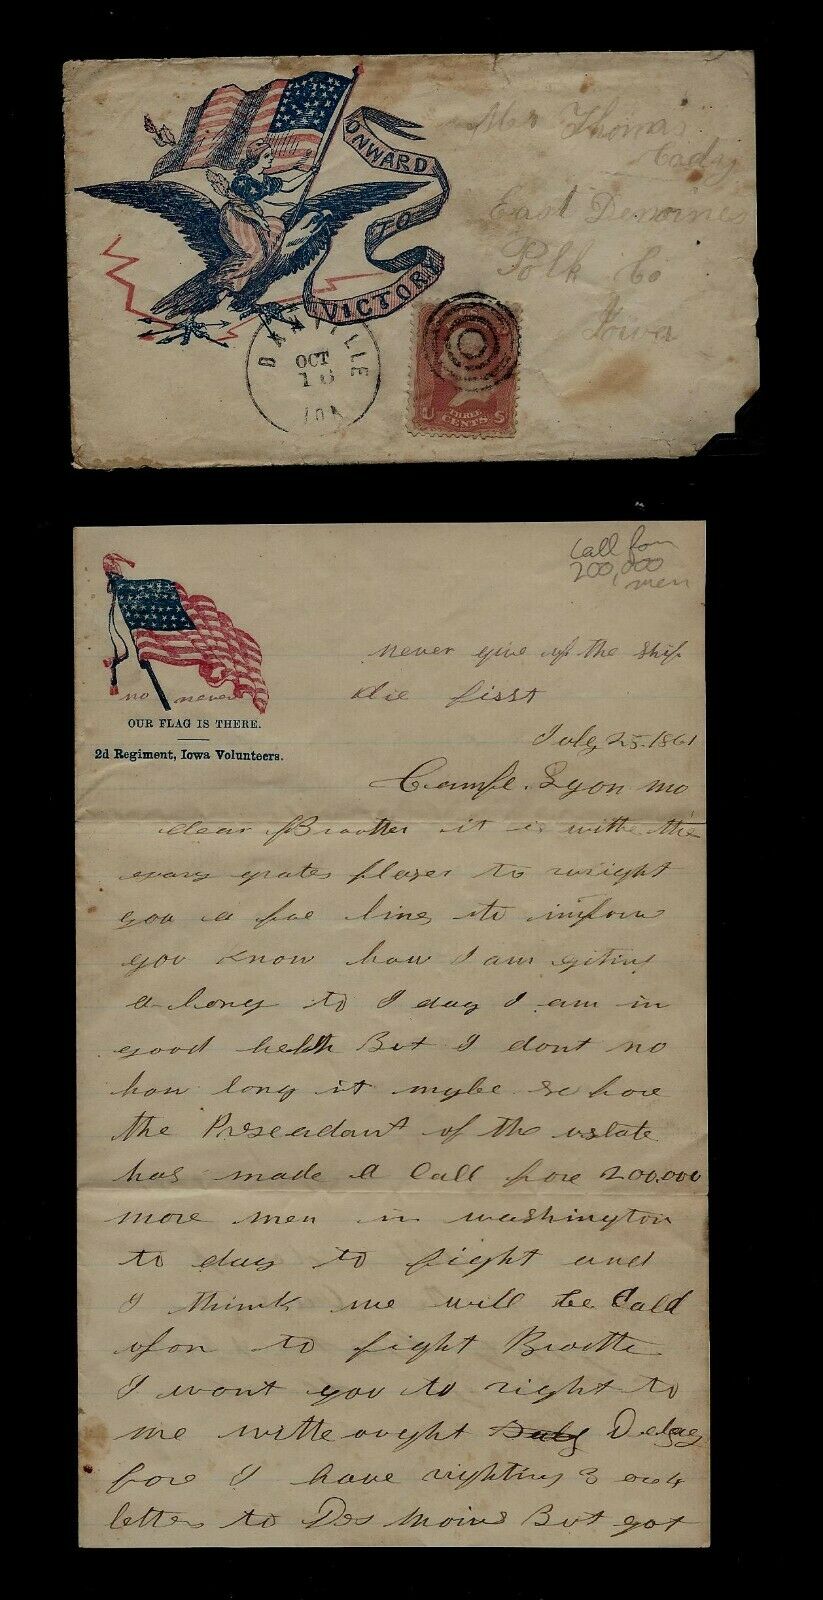 ONWARD
TO
VICTORY
Mr Thomas
Cady
East Demoines
Polk Co
Iowa
DANVILLE
OCT
16
IOA
U THREE CENTS S
Call for
200,000
men
never give up the ship
no never die first
OUR FLAG IS THERE.
2d Regiment, Iowa Volunteers.
July 25. 1861
Camp. Lyon mo
dear Brootter it is withe the
evary grates plaser to wright
you a foe lines to inform
you know how I am giting
a long to I day I am in
good helth But I dont no
how long it mybe
the Preseadant of the ustate
has made a Call fore 200.000
more men in washington
to day to fight and
I think we will be Cald
upon to fight Brootte
I wont you to right to
me withe ought Delaey
fore I have righting 3 ore 4
letters to Des Moins But got